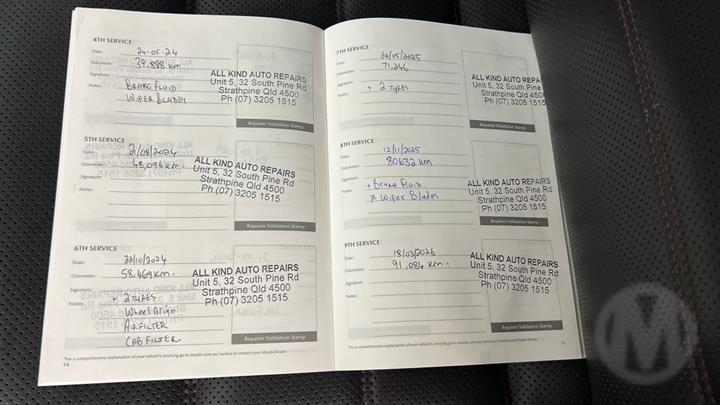 4TH SERVICE
Date: 24-05-24
Odometer: 39,888 km
Signature:
Notes: BRAKE FLUID
WIPER BLADES
ALL KIND AUTO REPAIRS
Unit 5, 32 South Pine Rd
Strathpine Qld 4500
Ph (07) 3205 1515
Repairer Validation Stamp
5TH SERVICE
Date: 21/08/2024
Odometer: 48,096 km.
Signature:
Notes:
ALL KIND AUTO REPAIRS
Unit 5, 32 South Pine Rd
Strathpine Qld 4500
Ph (07) 3205 1515
Repairer Validation Stamp
6TH SERVICE
Date: 22/10/2024
Odometer: 58.469 km.
Signature:
Notes: + 2 TYRES
Wheel Align
AIR FILTER
CAB FILTER
ALL KIND AUTO REPAIRS
Unit 5, 32 South Pine Rd
Strathpine Qld 4500
Ph (07) 3205 1515
Repairer Validation Stamp
*For a comprehensive explanation of your vehicle's servicing go to mazda.com.au/service or contact your Mazda Dealer.
14
7TH SERVICE
Date: 26/05/2025
Odometer: 71,246
Signature:
Notes: + 2 TYRES
ALL KIND AUTO REPAIRS
Unit 5, 32 South Pine Rd
Strathpine Qld 4500
Ph (07) 3205 1515
Repairer Validation Stamp
8TH SERVICE
Date: 12/11/2025
Odometer: 80632 km
Signature:
Notes: + Brake Fluid
+ Wiper Blades
ALL KIND AUTO REPAIRS
Unit 5, 32 South Pine Rd
Strathpine Qld 4500
Ph (07) 3205 1515
Repairer Validation Stamp
9TH SERVICE
Date: 18/03/2026
Odometer: 91,084 km.
Signature:
Notes:
ALL KIND AUTO REPAIRS
Unit 5, 32 South Pine Rd
Strathpine Qld 4500
Ph (07) 3205 1515
Repairer Validation Stamp
*For a comprehensive explanation of your vehicle's servicing go to mazda.com.au/service or contact your Mazda Dealer.
15
M